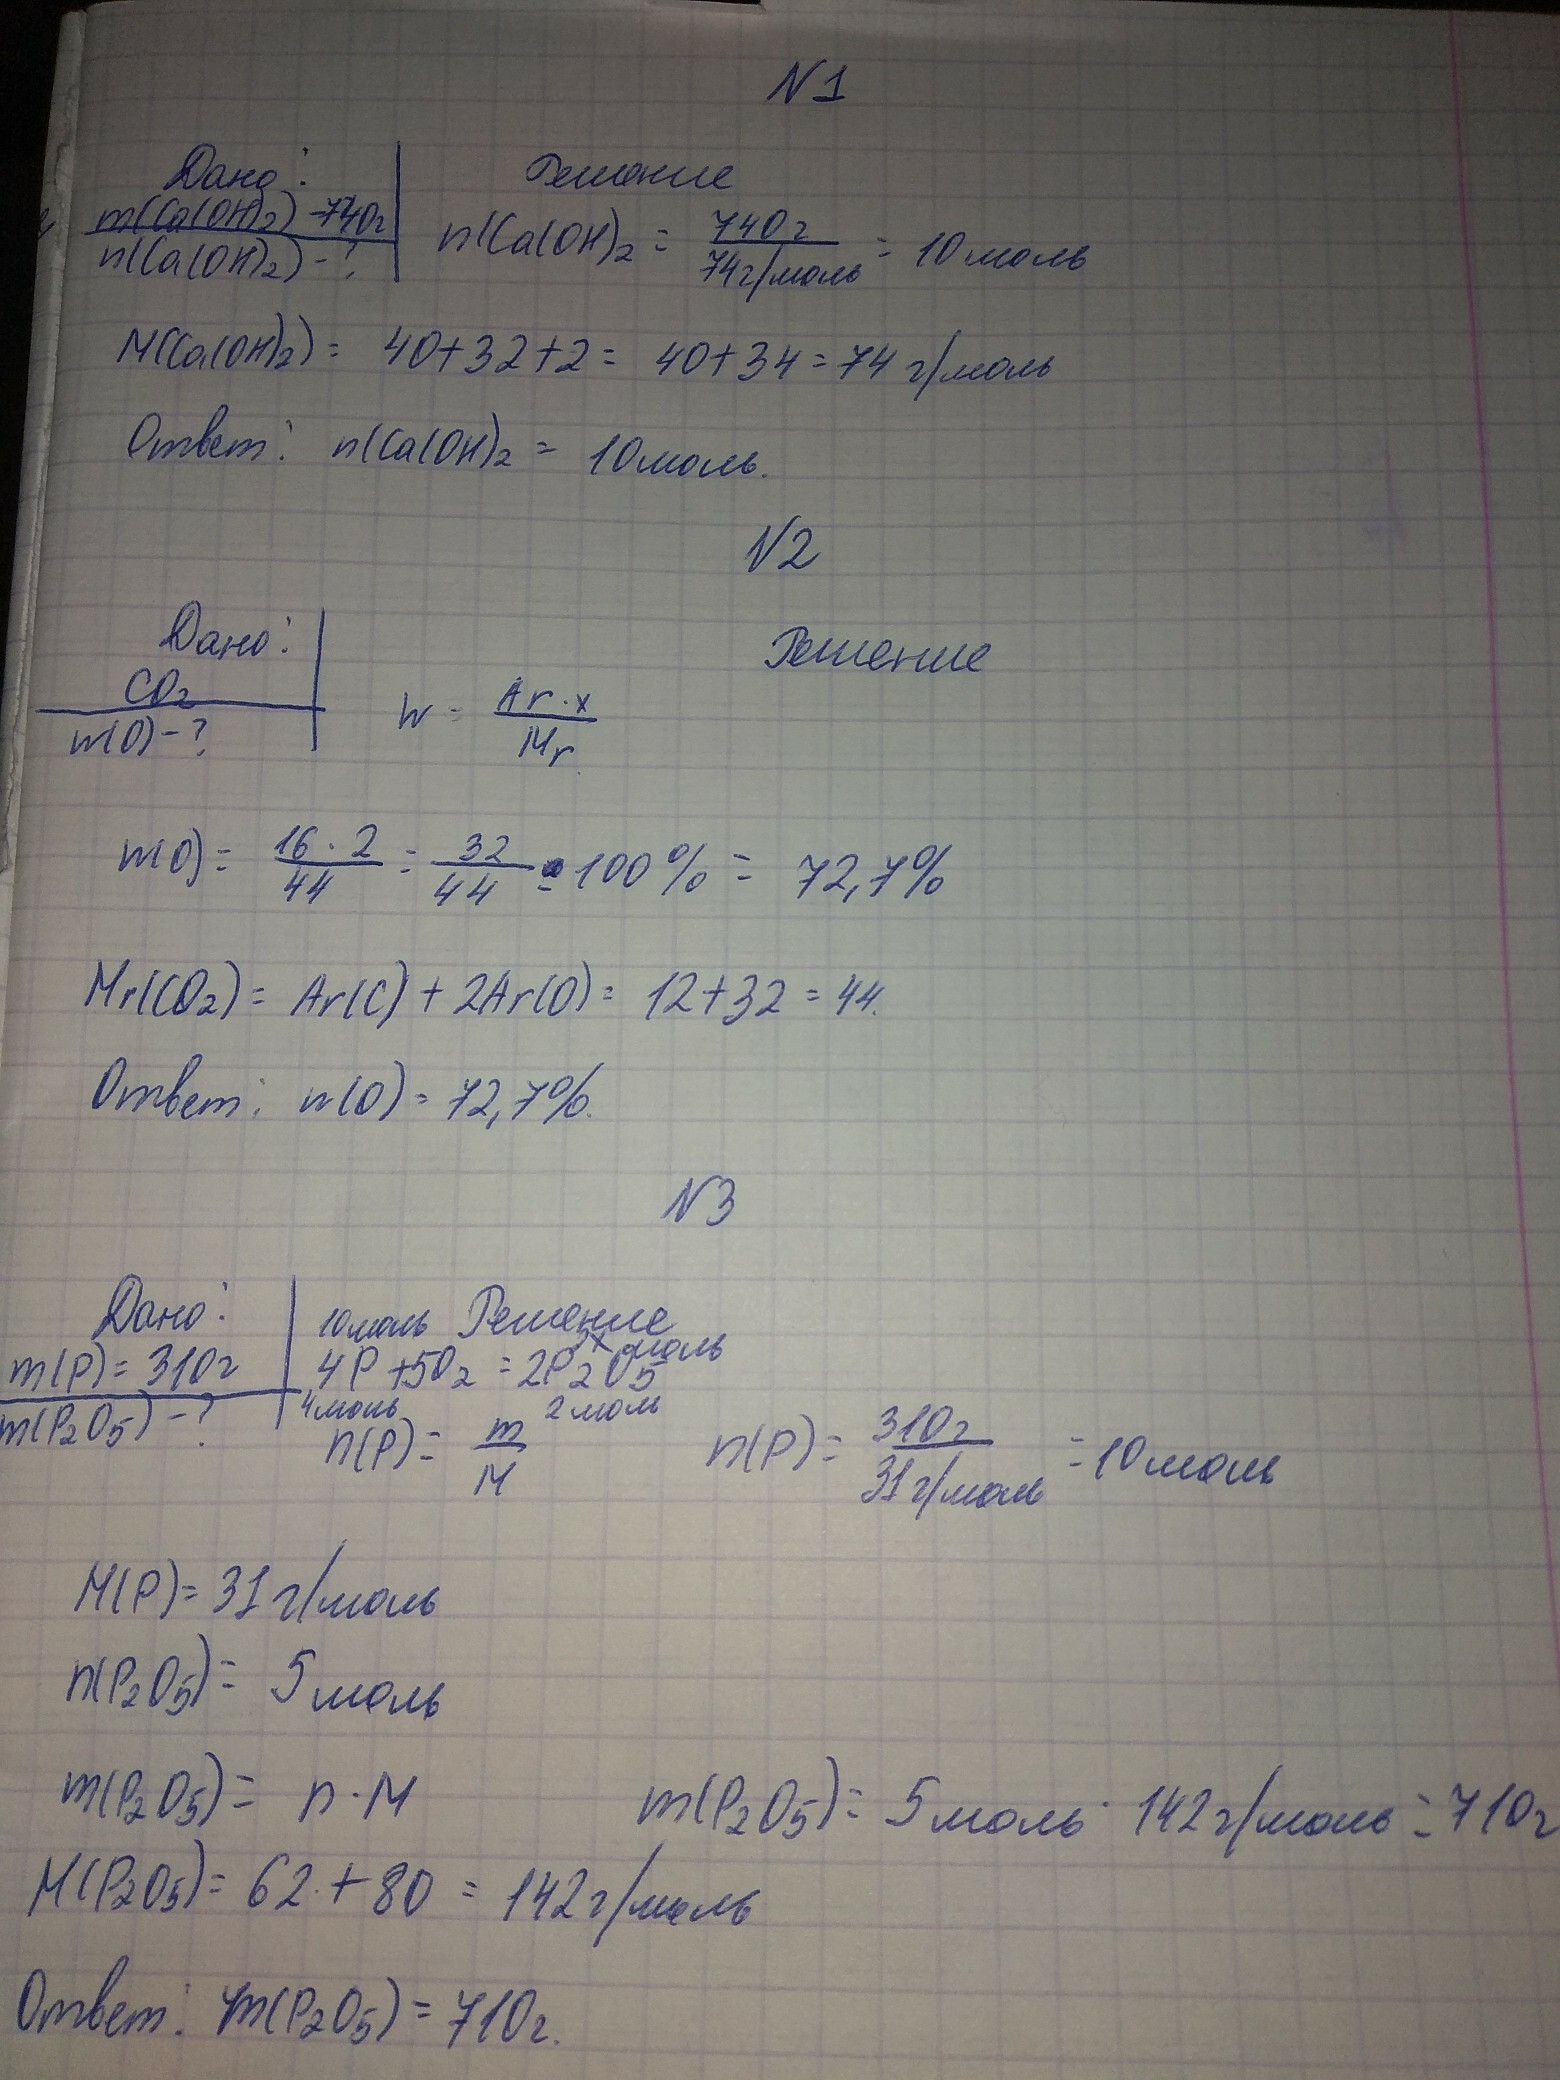 N1
Дано:
Решение
m(Ca(OH)2) - 740г
n(Ca(OH)2) - ?
n(Ca(OH)2 = 740г / 74г/моль = 10 моль
M(Ca(OH)2) = 40+32+2 = 40+34 = 74 г/моль
Ответ: n(Ca(OH)2 = 10 моль.
N2
Дано:
Решение
CO2
m(O) - ?
W = Ar·x / Mr
m(O) = 16·2 / 44 = 32 / 44 · 100% = 72,7%
Mr(CO2) = Ar(C) + 2Ar(O) = 12+32 = 44.
Ответ: w(O) = 72,7%.
N3
Дано:
10моль Решение
x моль
m(P) = 310г
4P + 5O2 = 2P2O5
4моль
2моль
m(P2O5) - ?
n(P) = m / M
n(P) = 310г / 31г/моль = 10моль
M(P) = 31 г/моль
n(P2O5) = 5 моль
m(P2O5) = n·M
m(P2O5) = 5моль · 142г/моль = 710г
M(P2O5) = 62 + 80 = 142г/моль
Ответ: m(P2O5) = 710г.